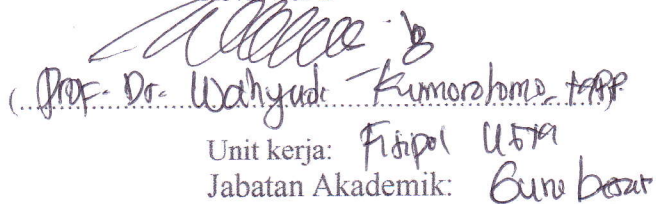 (Prof. Dr. Wahyudi Kumorotomo, MPP.
Unit kerja: Fisipol UGM
Jabatan Akademik: Guru besar